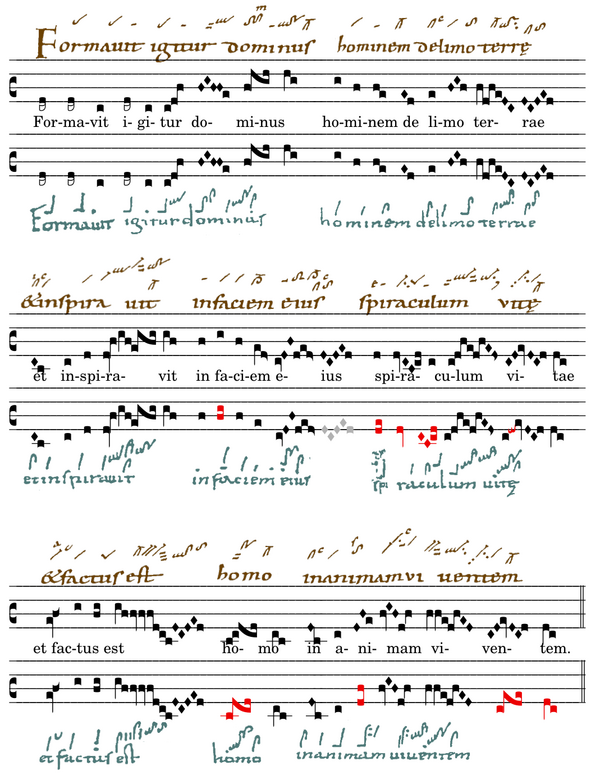 Formauit igitur dominus hominem delimo terrę
For-ma-vit i-gi-tur do-mi-nus ho-mi-nem de li-mo ter-rae
Formauit igitur dominus hominem delimo terrae
&inspira uit infaciem eius spiraculum vitę
et in-spi-ra-vit in fa-ci-em e-ius spi-ra-cu-lum vi-tae
et inspirauit infaciem eius spi raculum uitę
&factus est homo inanimam vi uentem
et fac-tus est ho-mo in a-ni-mam vi-ven-tem.
et factus est homo inanimam uiuentem